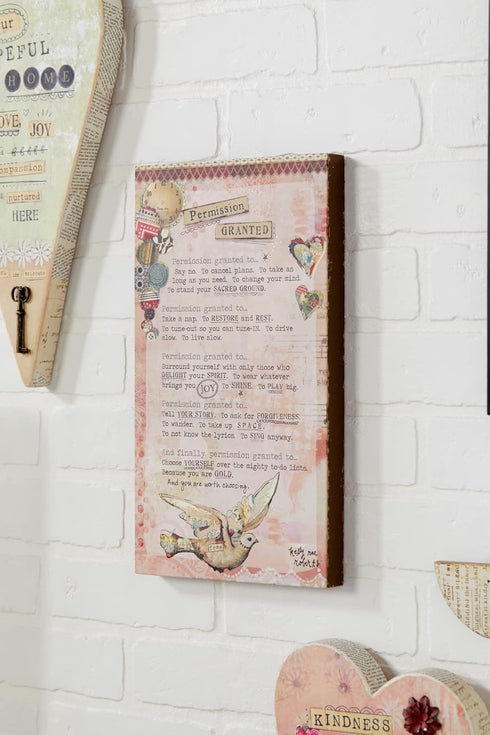 PEFUL
HOME
JOY
compassion
nurtured
HERE
Permission
GRANTED
Permission granted to...
Say no. To cancel plans. To take as
long as you need. To change your mind.
To stand your SACRED GROUND.
Permission granted to...
Take a nap. To RESTORE and REST.
To tune-out so you can tune-IN. To drive
slow. To live slow.
Permission granted to...
Surround yourself with only those who
DELIGHT your SPIRIT. To wear whatever
brings you JOY To SHINE. To PLAY big.
Permission granted to...
Tell YOUR STORY. To ask for FORGIVENESS.
To wander. To take up SPACE.
To not know the lyrics. To SING anyway.
And finally permission granted to...
Choose YOURSELF over the mighty to-do lists.
Because you are GOLD.
And you are worth choosing.
kelly rae
roberts
KINDNESS